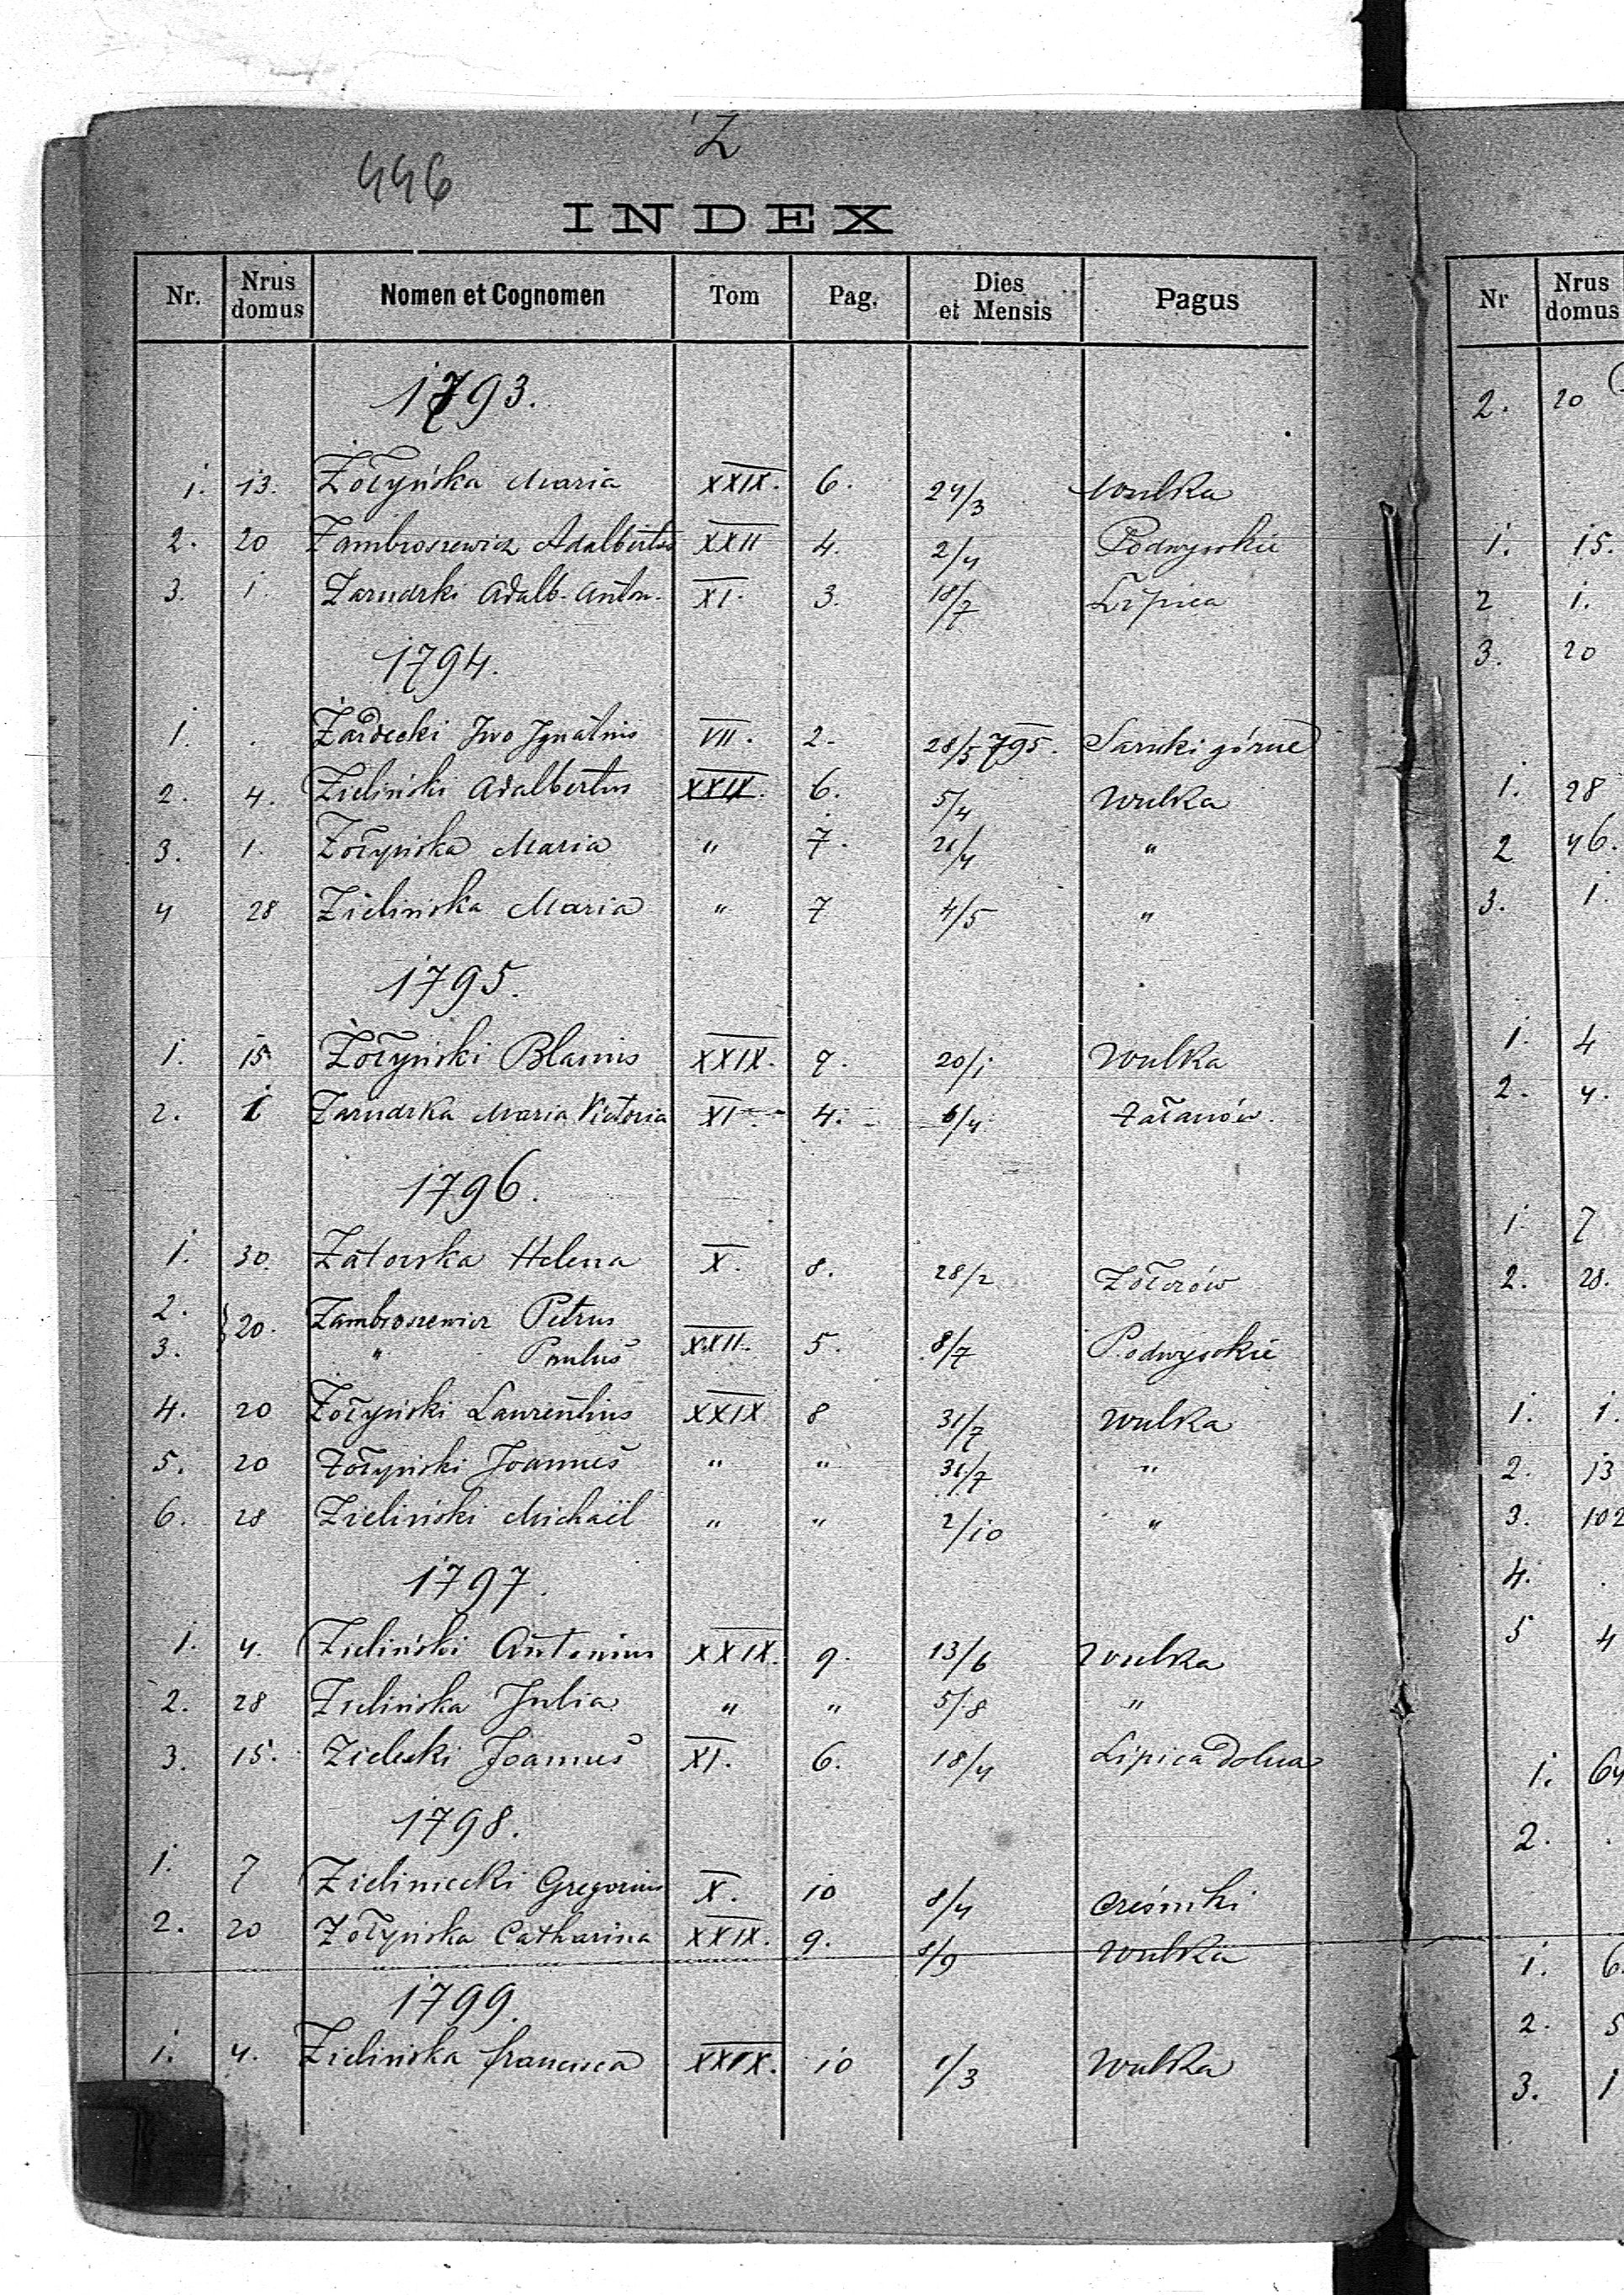 Z
446
INDEX
Nr. Nrus domus Nomen et Cognomen Tom Pag. Dies et Mensis Pagus
1793.
1. 13. Żołyńska Maria XXIX. 6. 24/3 Wulka
2. 20 Zambroszewicz Adalbertus XXII 4. 2/4 Podwysokie
3. 1. Zarudzki Adalb. Anton. XI. 3. 18/7 Lipica
1794.
1. . Żardecki Ivo Ignatius VII. 2. 28/5 795. Sarnki górne
2. 4. Zieliński Adalbertus XXIX. 6. 5/4 Wulka
3. 1. Żołyńska Maria " 7. 21/4 "
4 28 Zielińska Maria " 7 4/5 "
1795.
1. 15 Żołyński Blasius XXIX. 7. 20/1 Wulka
2. 1 Zarudzka Maria Victoria XI. 4. 6/4 Załanów.
1796.
1. 30. Zatorska Helena X. 8. 28/2 Żołczów
2. } 20. Zambroszewicz Petrus
3. " Paulus XXII. 5. 8/7 Podwysokie
4. 20 Żołyński Laurentius XXIX 8 31/7 Wulka
5. 20 Żołyński Joannes " " 31/7 "
6. 28 Zieliński Michaël " " 2/10 "
1797.
1. 4. Zieliński Antonius XXIX. 9. 13/6 Wulka
2. 28 Zielińska Julia " " 5/8 "
3. 15. Zielecki Joannes XI. 6. 18/4 Lipica Dolna
1798.
1. 7 Zieliniecki Gregorius X. 10 8/4 Cześniki
2. 20 Żołyńska Catharina XXIX. 9. 8/9 Wulka
1799.
1. 4. Zielińska Francisca XXIX. 10 1/3 Wulka
Nr Nrus domus
2. 20
1. 15.
2 1.
3. 20
1. 28
2 46.
3. 1.
1. 4
2. 4.
1. 7
2. 28.
1. 1.
2. 13
3. 102
4. .
5 4
1. 64
2. .
1. 6.
2. 5
3. 1